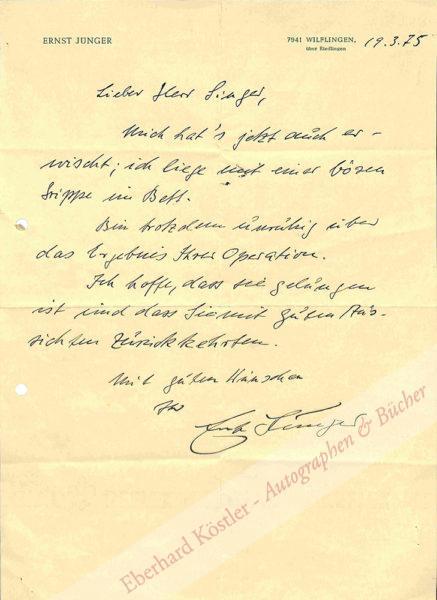 ERNST JÜNGER
7941 WILFLINGEN, 19.3.75
über Riedlingen
Lieber Herr Singer,
Mich hat's jetzt auch er-
wischt; ich liege mit einer bösen
Grippe im Bett.
Bin trotzdem unruhig über
das Ergebnis Ihrer Operation.
Ich hoffe, dass sie gelungen
ist und dass Sie mit guten Aus-
sichten zurückkehrten.
Mit guten Wünschen
Ihr
Ernst Jünger
Eberhard Köstler - Autographen & Bücher